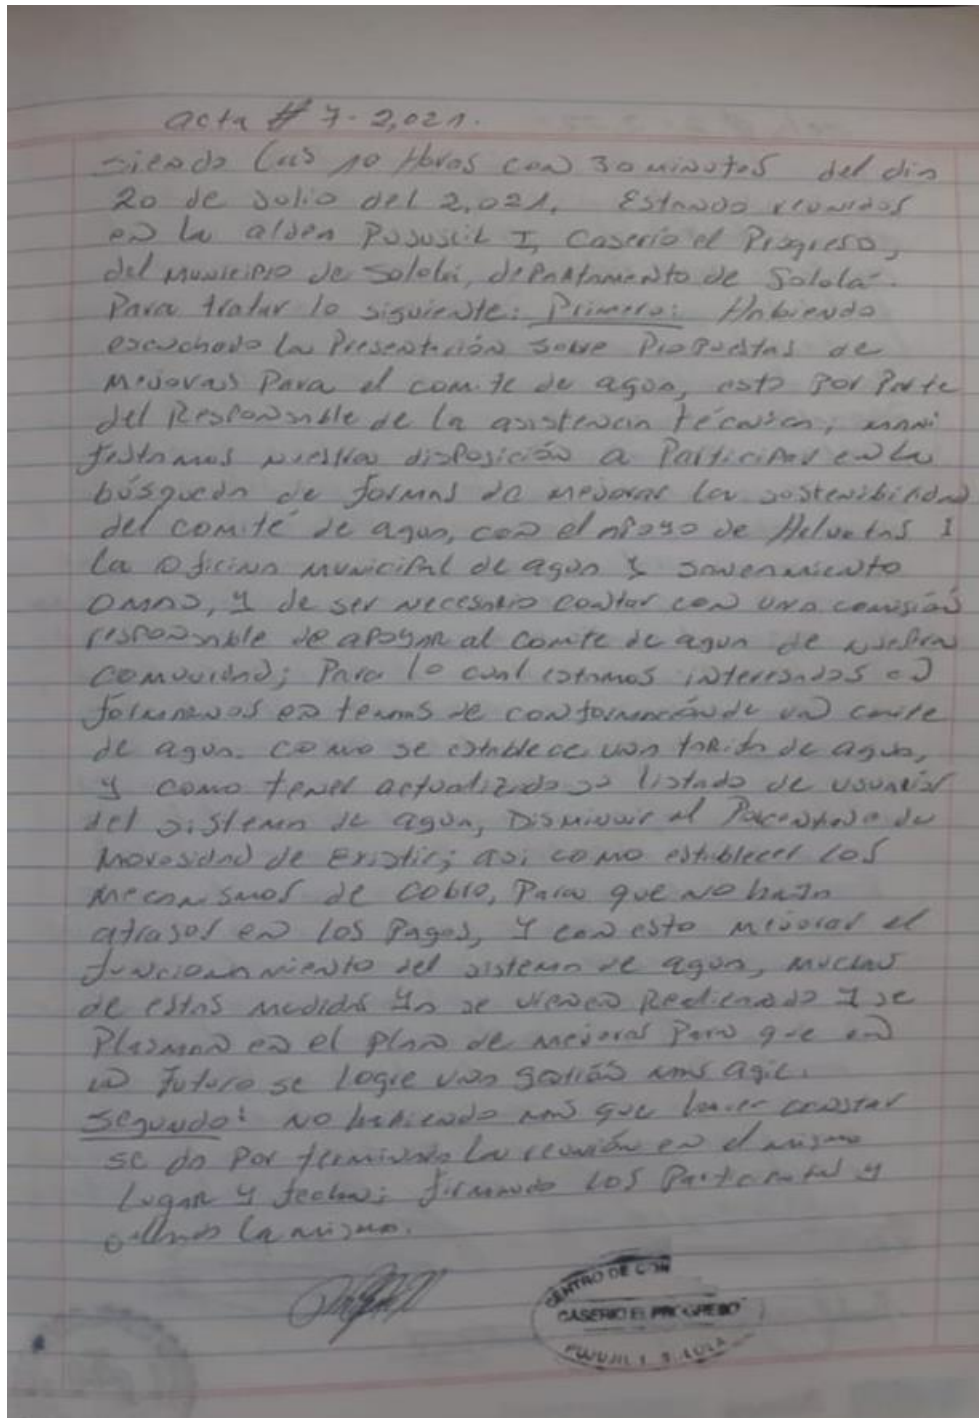 acta # 7-2,021.
siendo las 10 Horas con 30 minutos del dia
20 de Julio del 2,021, Estando reunidos
en la aldea Pujujil I, Caserío el Progreso,
del municipio de Sololá, departamento de Sololá.
Para tratar lo siguiente: Primero: Habiendo
escuchado la Presentación sobre Propuestas de
mejoras Para el comite de agua, esto Por Parte
del Responsable de la asistencia técnica, mani
festamos nuestra disposición a Participar en la
búsqueda de formas de mejorar la sostenibilidad
del comité de agua, con el apoyo de Helvetas Y
la Oficina municipal de agua Y saneamiento
OMAS, Y de ser necesario contar con una comisión
responsable de apoyar al comite de agua de nuestra
comunidad; Para lo cual estamos interesados en
formarnos en temas de conformación de un comite
de agua. como se establece una tarifa de agua,
Y como tener actualizado su listado de usuarios
del sistema de agua, Disminuir el Porcentaje de
Morosidad de Existir; asi como establecer los
mecanismos de cobro, Para que no haya
atrasos en los Pagos, Y con esto mejorar el
funcionamiento del sistema de agua, muchas
de estas medidas Ya se vienen Realizando Y se
Plasman en el plan de mejoras Para que en
un futuro se logre una gestión mas agil.
Segundo: No habiendo mas que hacer constar
se da por terminada la reunión en el mismo
lugar y fecha; firmando los Y
la misma.
CENTRO DE CON
CASERIO EL PROGRESO
PUJUJIL I SOLOLA